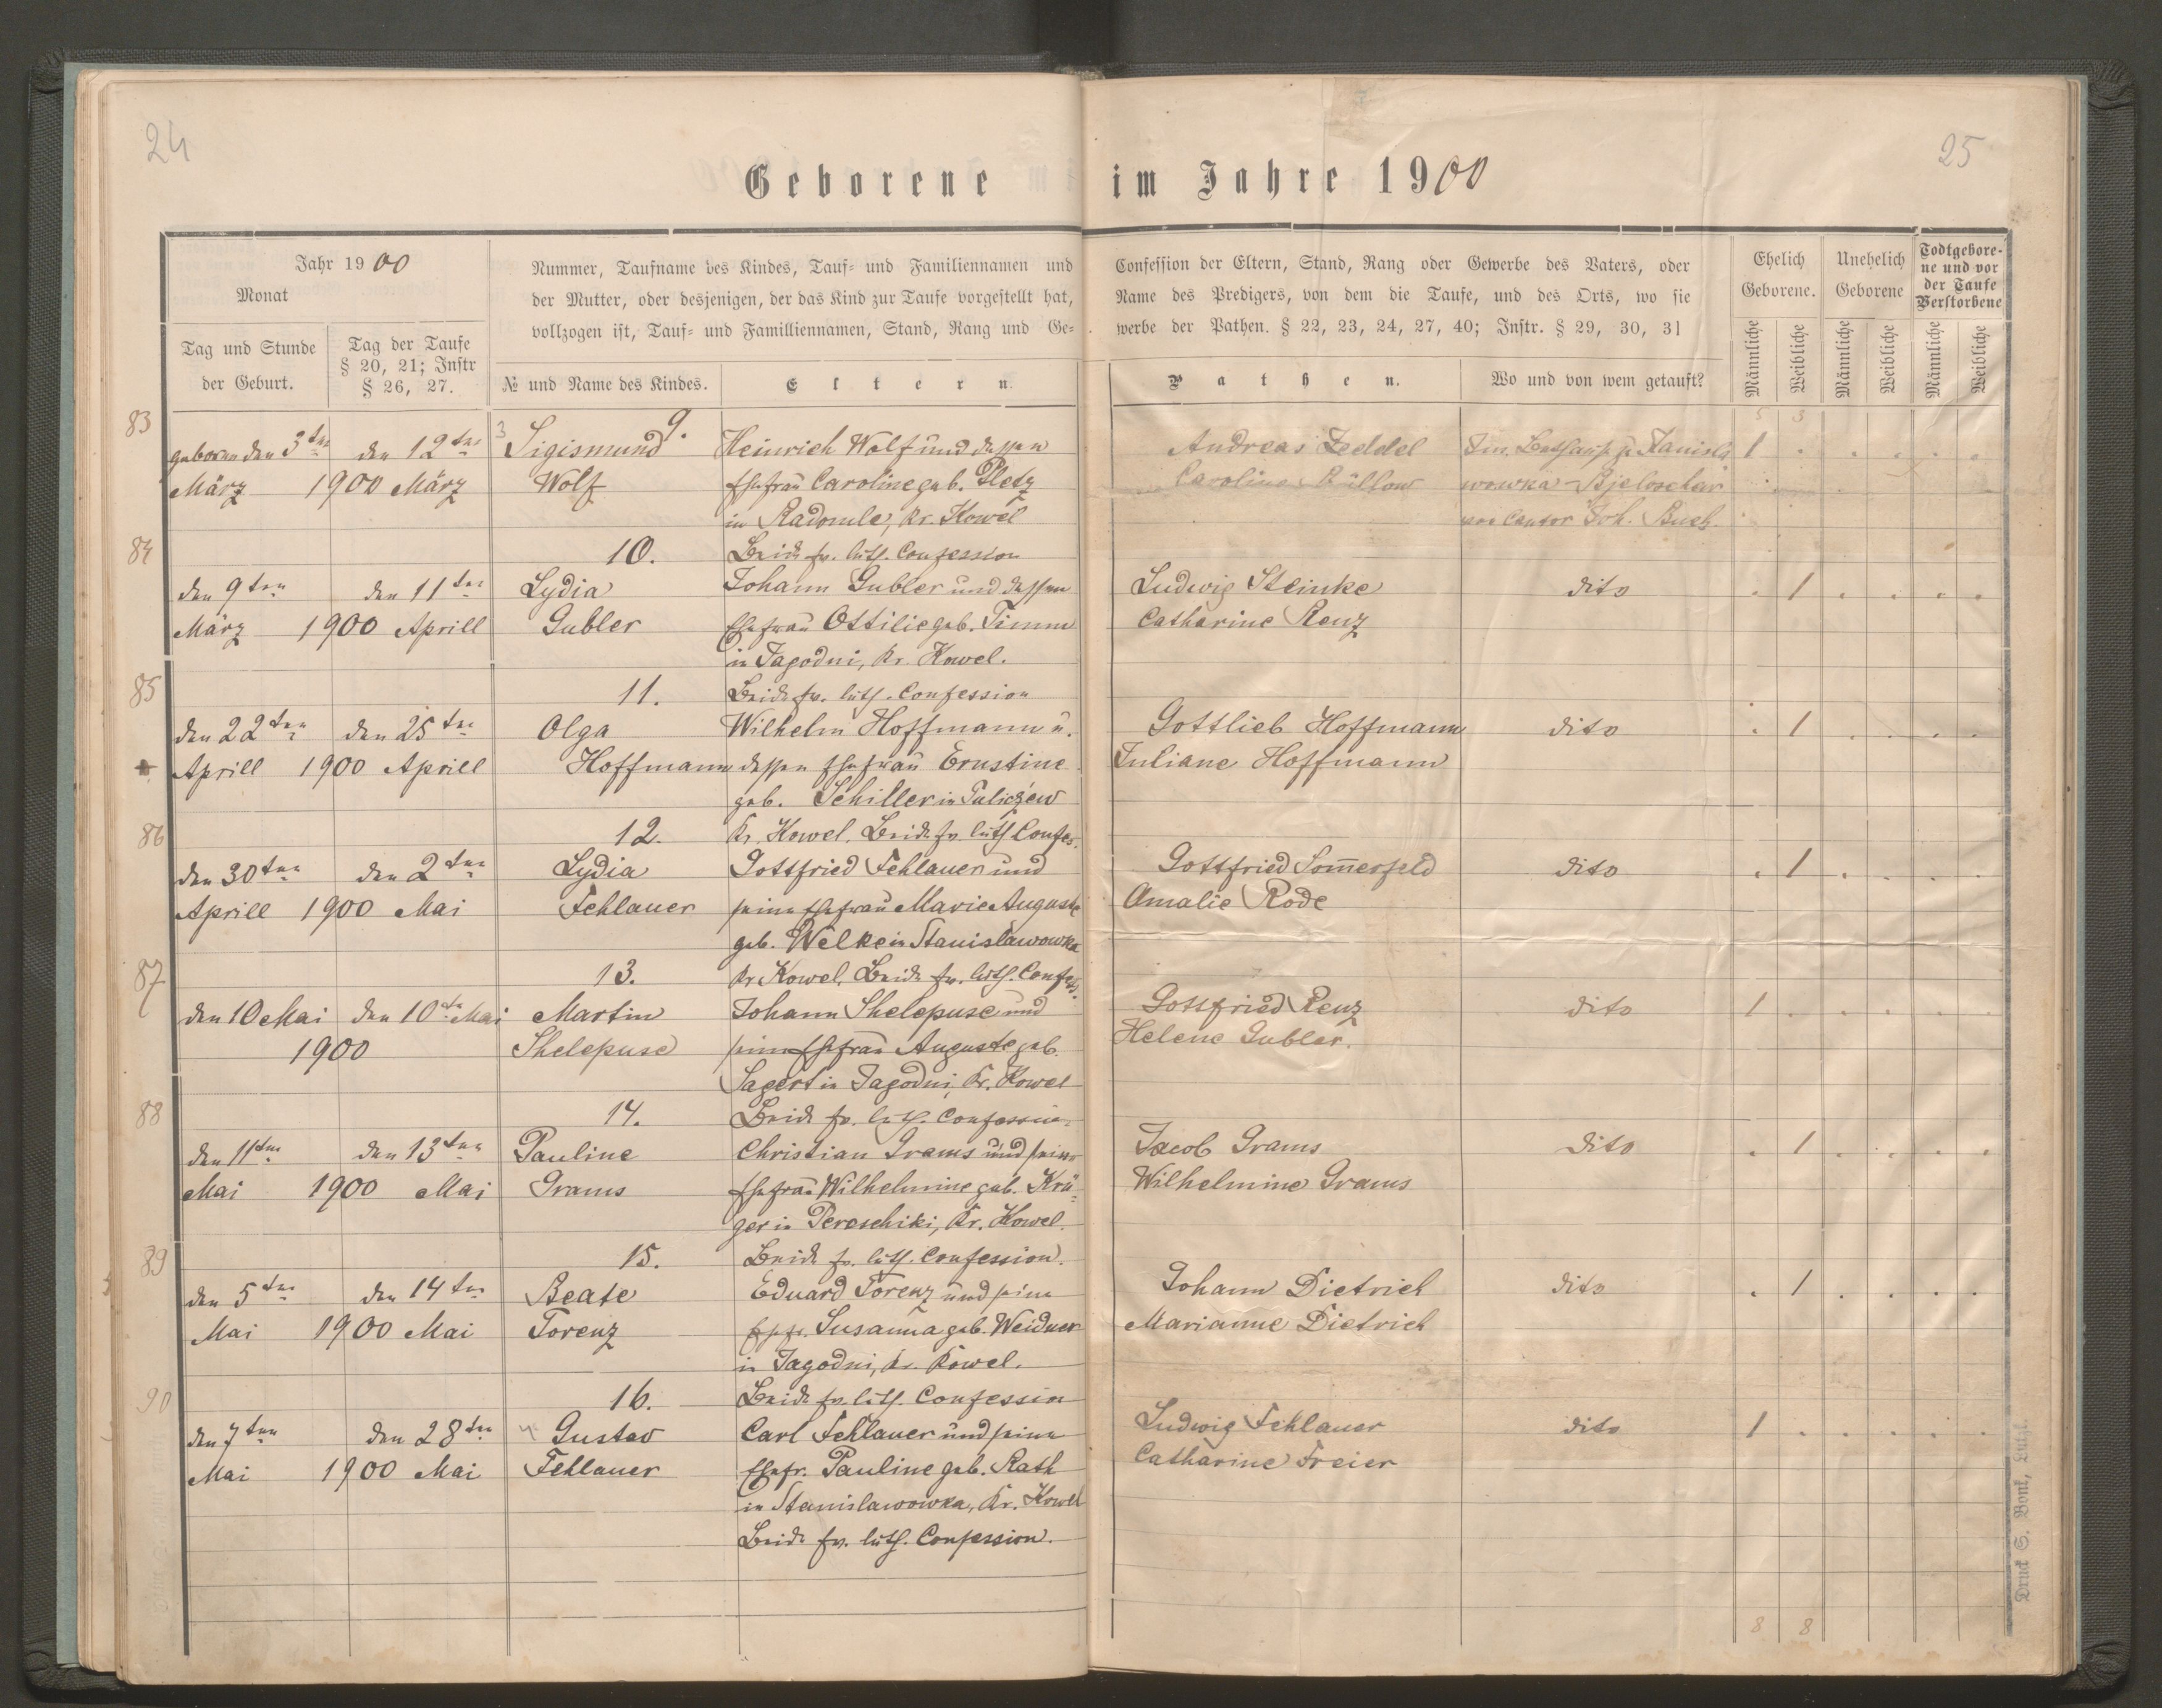 24
25
Geborene im Jahre 1900
Jahr 1900
Monat
Tag und Stunde der Geburt.
Tag der Taufe § 20, 21; Instr § 26, 27.
Nummer, Taufname des Kindes, Tauf- und Familiennamen und
der Mutter, oder desjenigen, der das Kind zur Taufe vorgestellt hat,
vollzogen ist, Tauf- und Familliennamen, Stand, Rang und Ge-
№ und Name des Kindes.
Eltern.
Confession der Eltern, Stand, Rang oder Gewerbe des Vaters, oder
Name des Predigers, von dem die Taufe, und des Orts, wo sie
werbe der Pathen. § 22, 23, 24, 27, 40; Instr. § 29, 30, 31
Pathen.
Wo und von wem getauft?
Ehelich Geborene.
Unehelich Geborene
Todtgebore-
ne und vor
der Taufe
Verstorbene
Männliche
Weibliche
Männliche
Weibliche
Männliche
Weibliche
5 3
83
9.
geboren den 3ten den 12ten 3 Sigismund Heinrich Wolf und dessen Andreas Zeddel Im Bethause zu Stanisla 1
März 1900 März Wolf Ehefrau Caroline geb. Pletz Caroline Büllow wowka-Bjeloschar
in Radomle, Kr. Kowel von Cantor Joh. Buch.
84
10. Beide ev. luth. Confession
den 9ten den 11ten Lydia Johann Gubler und dessen Ludwig Steinke dito 1
März 1900 Aprill Gubler Ehefrau Ottilie geb. Timm Catharine Renz
in Jagodni, Kr. Kowel.
85
11. Beide ev. luth. Confession
den 22ten den 25ten Olga Wilhelm Hoffmann u. Gottlieb Hoffmann dito 1
Aprill 1900 Aprill Hoffmann dessen Ehefrau Ernstine Juliane Hoffmann
geb. Schiller in
86
12. Kr. Kowel. Beide ev. luth Confes.
den 30ten den 2ten Lydia Gottfried Fehlauer und Gottfried Somerfeld dito 1
Aprill 1900 Mai Fehlauer seine Ehefrau Marie Auguste Amalie Rode
geb. Welke in Stanislawowka
87
13. Kr Kowel. Beide ev. luth. Confess.
den 10 Mai den 10te Mai Martin Johann Shelepuse und Gottfried Renz dito 1
1900 Shelepuse seine Ehefrau Auguste geb. Helene Gubler.
Sagert in Jagodni, Kr. Kowel
88
14. Beide ev. luth. Confession.
den 11ten den 13ten Pauline Christian Grams und seine Jacob Grams dito 1
Mai 1900 Mai Grams Ehefrau Wilhelmine geb. Krü- Wilhelmine Grams
ger in Peroschiki, Kr. Kowel.
89
15. Beide ev. luth. Confession.
den 5ten den 14ten Beate Eduard Torenz und seine Johann Dietrich dito 1
Mai 1900 Mai Torenz Ehefr. Susanna geb. Weidner Marianne Dietrich
in Jagodni, Kr. Kowel.
90
16. Beide ev. luth. Confession
den 7ten den 28ten 4 Gustav Carl Fehlauer und seine Ludwig Fehlauer dito 1
Mai 1900 Mai Fehlauer Ehefr. Pauline geb. Rath Catharine Freier
in Stanislawowka, Kr. Kowel
Beide ev. luth. Confession.
8 8
Druck S. Bonk, Luzk.